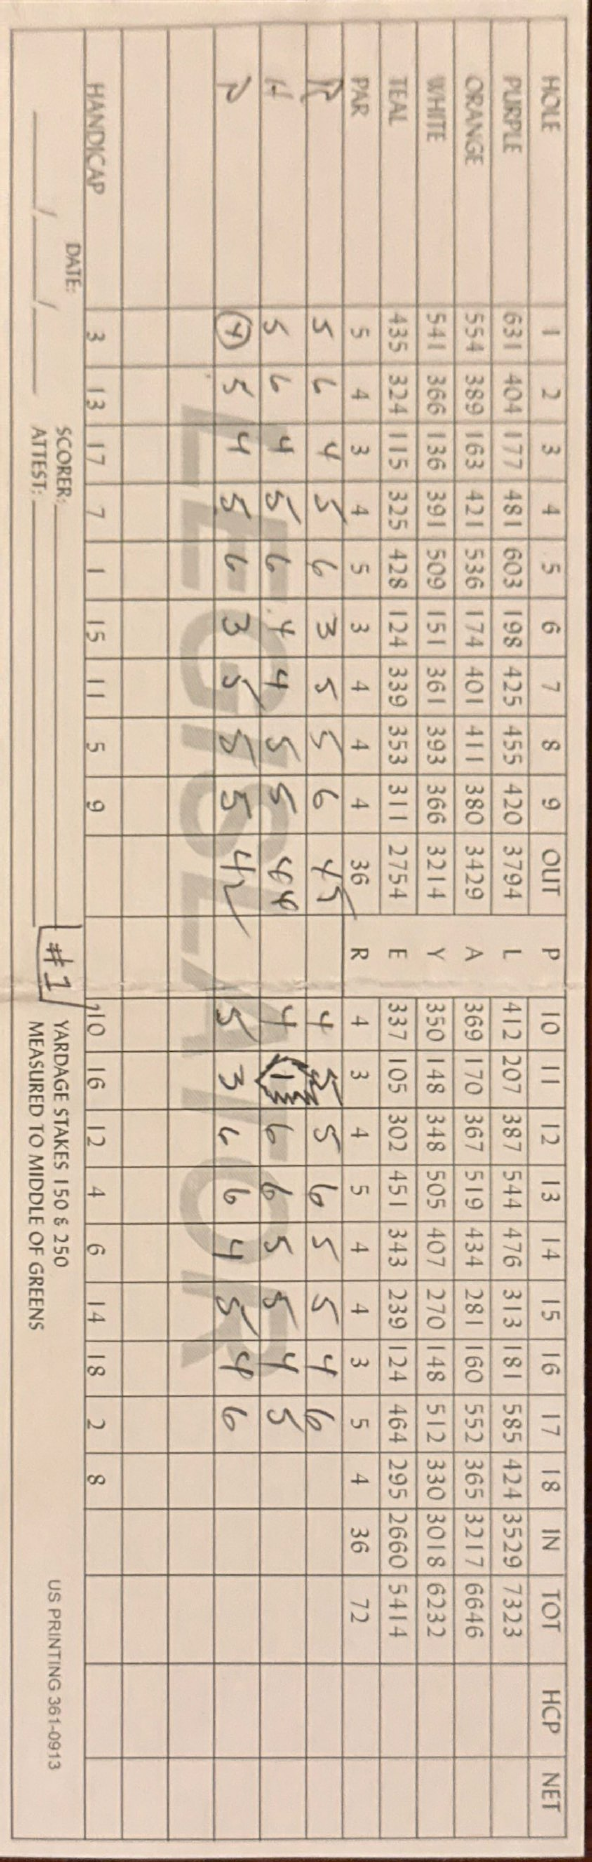 HOLE 1 2 3 4 5 6 7 8 9 OUT P 10 11 12 13 14 15 16 17 18 IN TOT HCP NET
PURPLE 631 404 177 481 603 198 425 455 420 3794 L 412 207 387 544 476 313 181 585 424 3529 7323
ORANGE 554 389 163 421 536 174 401 411 380 3429 A 369 170 367 519 434 281 160 552 365 3217 6646
WHITE 541 366 136 391 509 151 361 393 366 3214 Y 350 148 348 505 407 270 148 512 330 3018 6232
TEAL 435 324 115 325 428 124 339 353 311 2754 E 337 105 302 451 343 239 124 464 295 2660 5414
PAR 5 4 3 4 5 3 4 4 4 36 R 4 3 4 5 4 4 3 5 4 36 72
R 5 6 4 5 6 3 5 5 6 45 4 5 5 6 5 5 4 6
H 5 6 4 5 6 4 4 5 5 44 4 1 6 6 5 5 4 5
P 4 5 4 5 6 3 5 5 5 42 5 3 6 6 4 5 4 6
LEGISLATOR
HANDICAP 3 13 17 7 1 15 11 5 9 10 16 12 4 6 14 18 2 8
#1
DATE: / / SCORER: YARDAGE STAKES 150 & 250
ATTEST: MEASURED TO MIDDLE OF GREENS
US PRINTING 361-0913